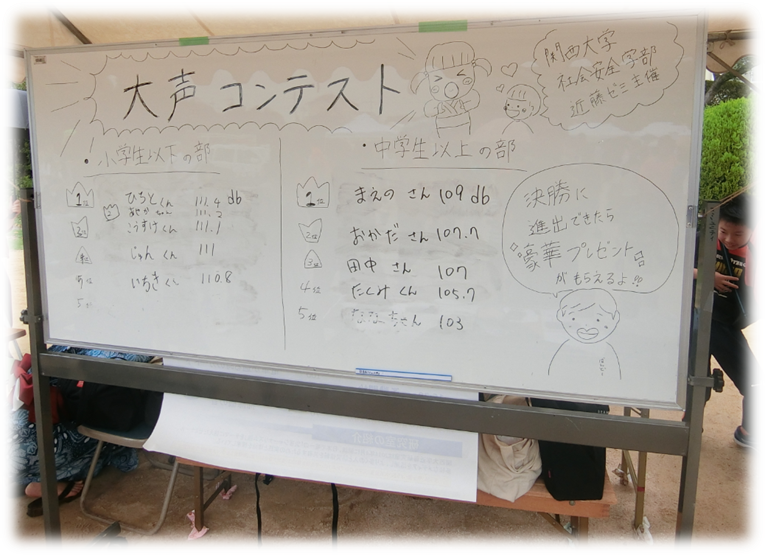 大声コンテスト
関西大学
社会安全学部
近藤ゼミ主催
・小学生以下の部
1位 ひろとくん 111.4 db
2
111.2
こうすけくん 111.1
じゅんくん 111
いちきくん 110.8
5位
・中学生以上の部
1位 まえのさん 109 db
2位 おかださん 107.7
3位 田中さん 107
4位 たくみくん 105.7
5位 さん 103
決勝に
進出できたら
豪華プレゼント
がもらえるよ!!